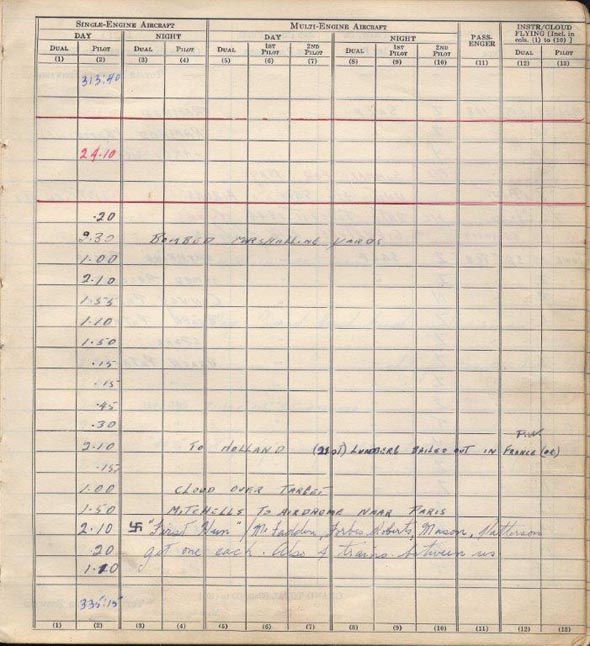 SINGLE-ENGINE AIRCRAFT MULTI-ENGINE AIRCRAFT PASS-ENGER INSTR/CLOUD FLYING [Incl. in cols. (1) to (10)]
DAY NIGHT DAY NIGHT
DUAL PILOT DUAL PILOT DUAL 1ST PILOT 2ND PILOT DUAL 1ST PILOT 2ND PILOT DUAL PILOT
(1) (2) (3) (4) (5) (6) (7) (8) (9) (10) (11) (12) (13)
313:40
24.10
.20
2.30 BOMBED MARSHALLING YARDS
1.00
2.10
1.55
1.10
1.50
.15
.15
.45
.30
2.10 TO HOLLAND LUNDBERG BAILED OUT IN FRANCE (OK)
.15
1.00 CLOUD OVER TARGET
1.50 MITCHELLS TO AIRDROME NEAR PARIS
2.10 卐 "First Hun" / McFadden, Forbes Roberts, Mason, Patterson
.20 got one each. Also 4 trains between us
1.20
335:15
(1) (2) (3) (4) (5) (6) (7) (8) (9) (10) (11) (12) (13)